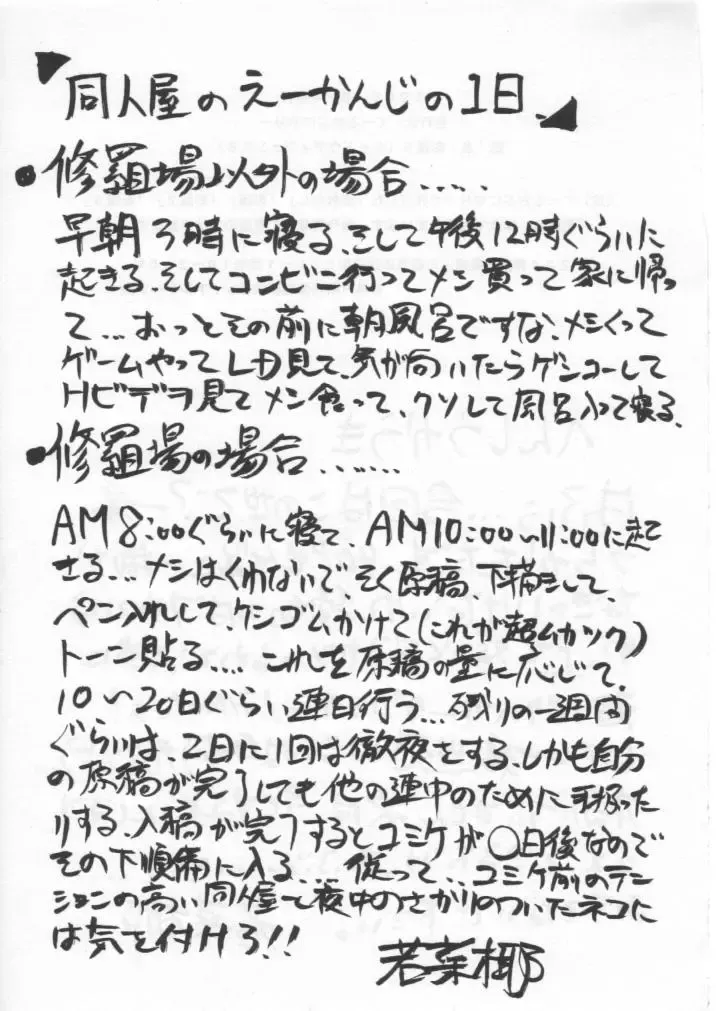 同人屋のえーかんじの1日
●修羅場以外の場合……
早朝3時に寝る、そして午後12時ぐらいに
起きる、そしてコンビニ行ってメシ買って家に帰っ
て…おっとその前に朝風呂ですな、メシくって
ゲームやってLD見て、気が向いたらゲンコーして
Hビデヲ見てメシ食って、クソして風呂入って寝る、
●修羅場の場合……
AM8:00ぐらいに寝て、AM10:00〜11:00に起
きる…メシはくわないで、そく原稿、下描きして、
ペン入れして、ケシゴムかけて(これが超ムカツク)
トーン貼る…これを原稿の量に応じて、
10〜20日ぐらい連日行う…残りの一週間
ぐらいは、2日に1回は徹夜をする、しかも自分
の原稿が完了しても他の連中のために手伝った
りする、入稿が完了するとコミケが○日後なので
その下準備に入る…従って…コミケ前のテン
ションの高い同人屋と夜中のさかりのついたネコに
は気を付けろ!!
若菜椰